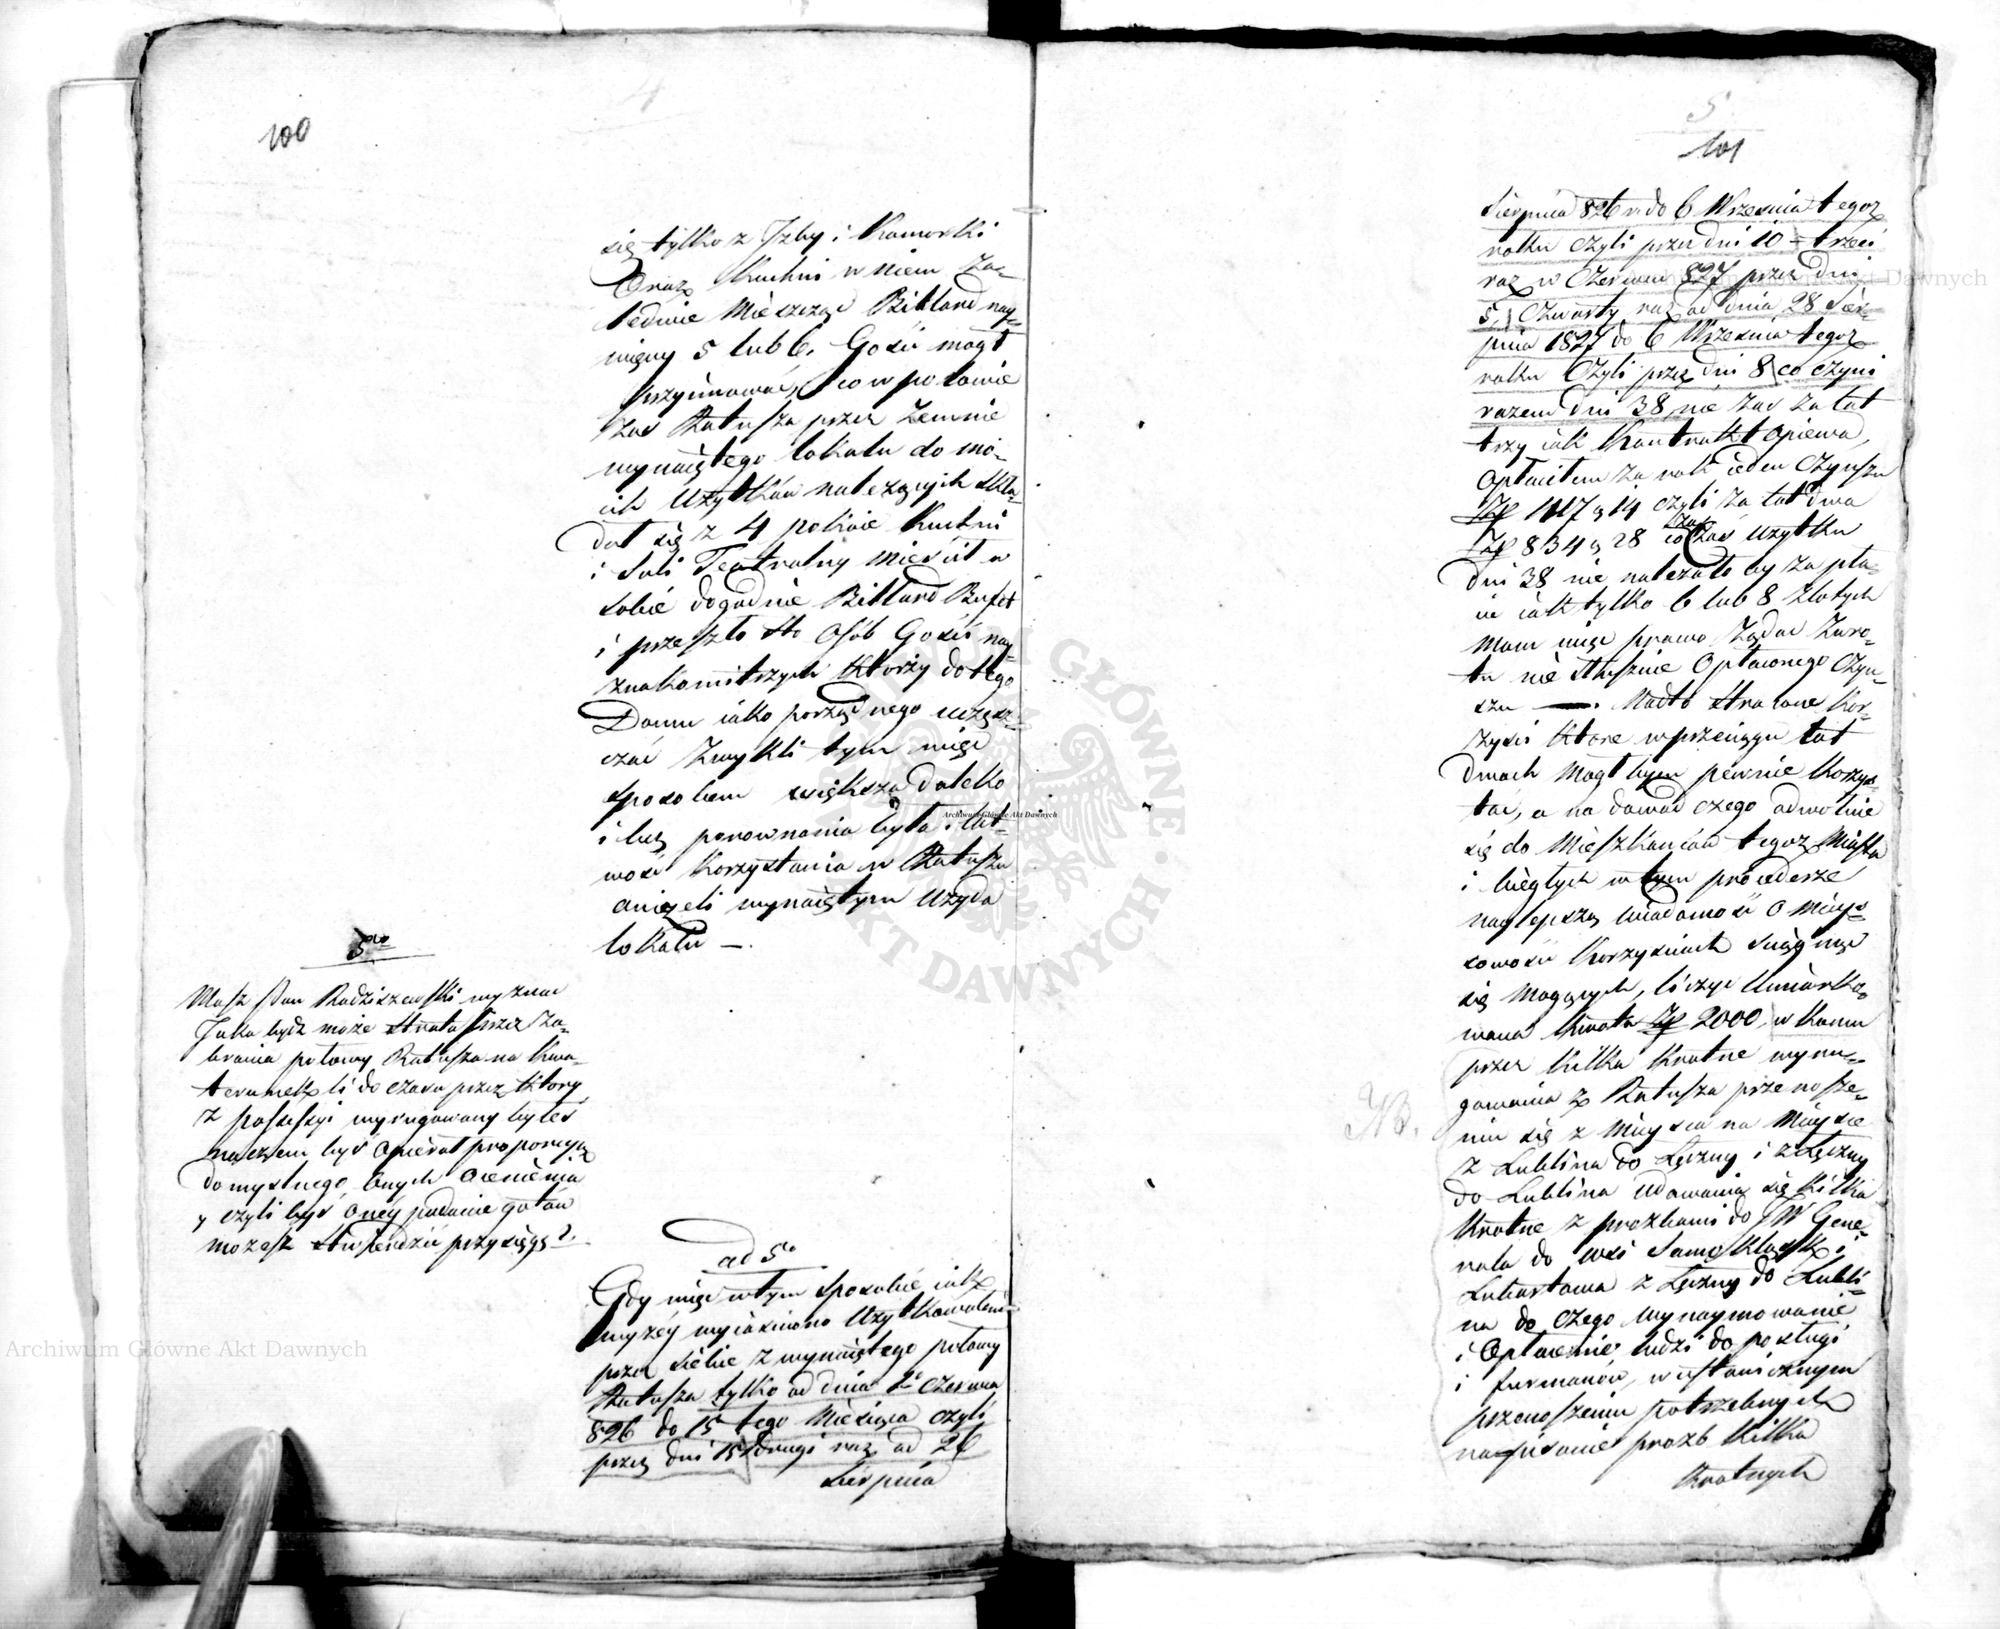 100
4
się tylko z Izby i Komorki
Oraz Kuchni w niem Za-
ledwie Mieszcząc Billard nay-
więcy 5 lub 6. Gości mógł
przyimować, co w połowie
zas Ratusza przez Zemnie
wynaiętego lokalu do mo-
ich Użytków należących skła-
dał się z 4 pokoie Kuchni
i Sali Teatralny mieścił w
sobie dogodnie Billard Bufet
i przeszło sto Osób Gości nay-
znakomitszych którzy do tego
Domu iako porządnego uczęsz-
czać Zwykli tym więc
sposobem większa daleko
i bez porownania była łat-
wość Korzystania w Ratuszu
aniżeli wynaiętym u Żyda
lokalu —.
5to
Masz Pan Radziszewski wyznać
Jaka bydź może Strata przez Za-
brania połowy Ratusza na Kwa-
terunek li do czasu przez który
z possessyi wyrugowany byłeś
na czem byś opierał proporcyą
domyslnego onych ocenienia
y czyli byś oney podanie gotów
możesz stwierdzić przysięgą?
ad 5o
Gdy więc w tym Sposobie iak
wyżey wyiaśniono Użytkowałem
przez siebie z wynaiętego połowy
Ratusza tylko od dnia 1o Czerwca
826 do 15 tego Miesiąca czyli
przez dni 15 drugi raz od 26
Sierpnia
5
101
Sierpnia 826 r. do 6 Września tegoż
roku czyli przez dni 10 – trzeci
raz w Czerwcu 827 przez dni
5, Czwarty raz od dnia 28 Sier-
pnia 1827 do 6 Września tegoż
roku Czyli przez dni 8 co czyni
razem dni 38 nie zas za lat
trzy iak Kontrakt Opiewa,
Opłaciłem za rok ieden Czynszu
Zł 417 g 14 czyli za lat dwa
Zł 834 g 28 co zas użytku
dni 38 nie należało by zapła-
cić iak tylko 6 lub 8 złotych
Mam więc prawo żądać Zwro-
tu nie słusznie Opłaconego Czyn-
szu —. Nadto stracone kor-
zyści które w przeciągu lat
dwoch Mogł bym pewnie korzys-
tać, a na dowód czego odwołuie
się do Mieszkańców tegoż Miasta
i biegłych w tym procederze
naylepszą wiadomość o miey-
scowości korzyściach sięgnąć
się mogących, liczyć Umiarko-
wana kwota Zł 2000, w koncu
przez kilka krotne wyru-
gowania z Ratusza przenosze-
niu się z mieysca na mieysce
z Lublina do Łęczny i z Łęczny
do Lublina udawania się kilka
krotne z prozbami do JW Gene-
rała do wsi Samoklęsk i
Lubartowa z Łęczny do Lubli-
na do czego wynaymowanie
i Opłacenie ludzi do posługi
i furmanów, w ustawicznym
przenoszeniu potrzebnych
napisanie prozb kilka
krotnych
NB.
Archiwum Główne Akt Dawnych
Archiwum Główne Akt Dawnych
Archiwum Główne Akt Dawnych